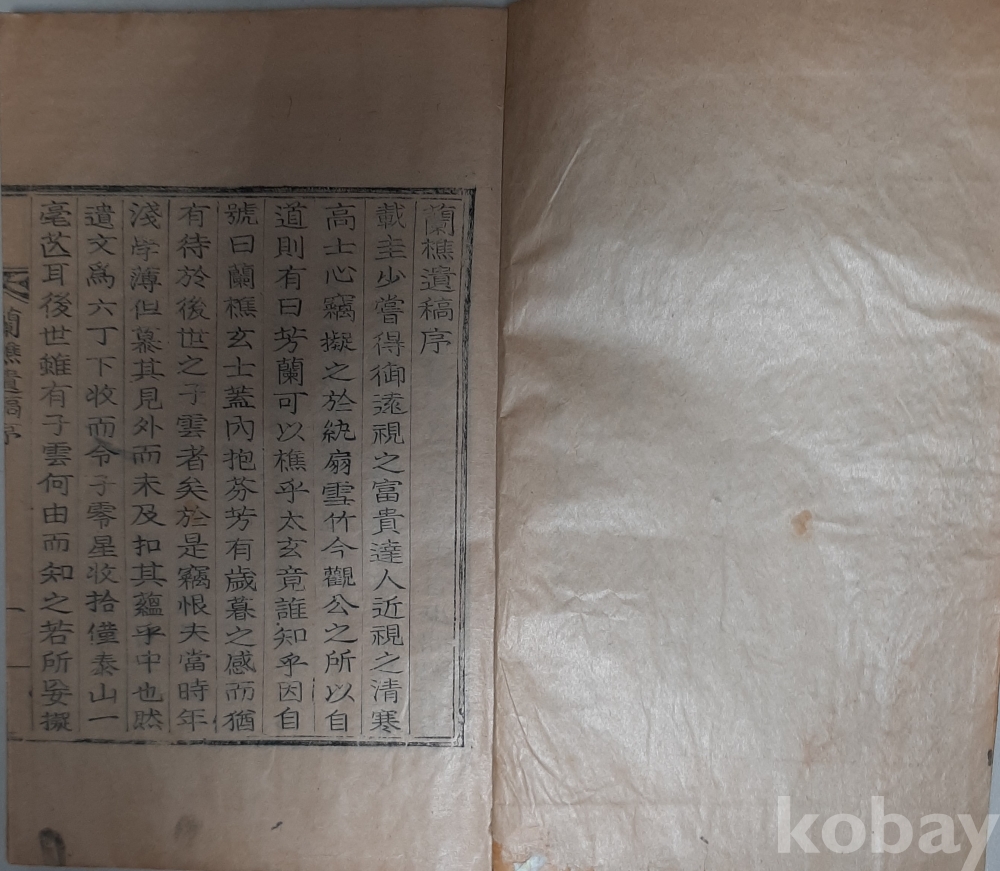 蘭樵遺稿序
載圭少嘗得御遠視之富貴達人近視之清寒
高士心竊擬之於紈扇雪竹今觀公之所以自
道則有曰芳蘭可以樵乎太玄竟誰知乎因自
號曰蘭樵玄士蓋內抱芬芳有歲暮之感而猶
有待於後世之子雲者矣於是竊恨夫當時年
淺学薄但慕其見外而未及扣其蘊乎中也然
遺文爲六丁下收而令子零星收拾僅泰山一
毫芒耳後世雖有子雲何由而知之若所妄擬
蘭樵遺稿序
一
kobay